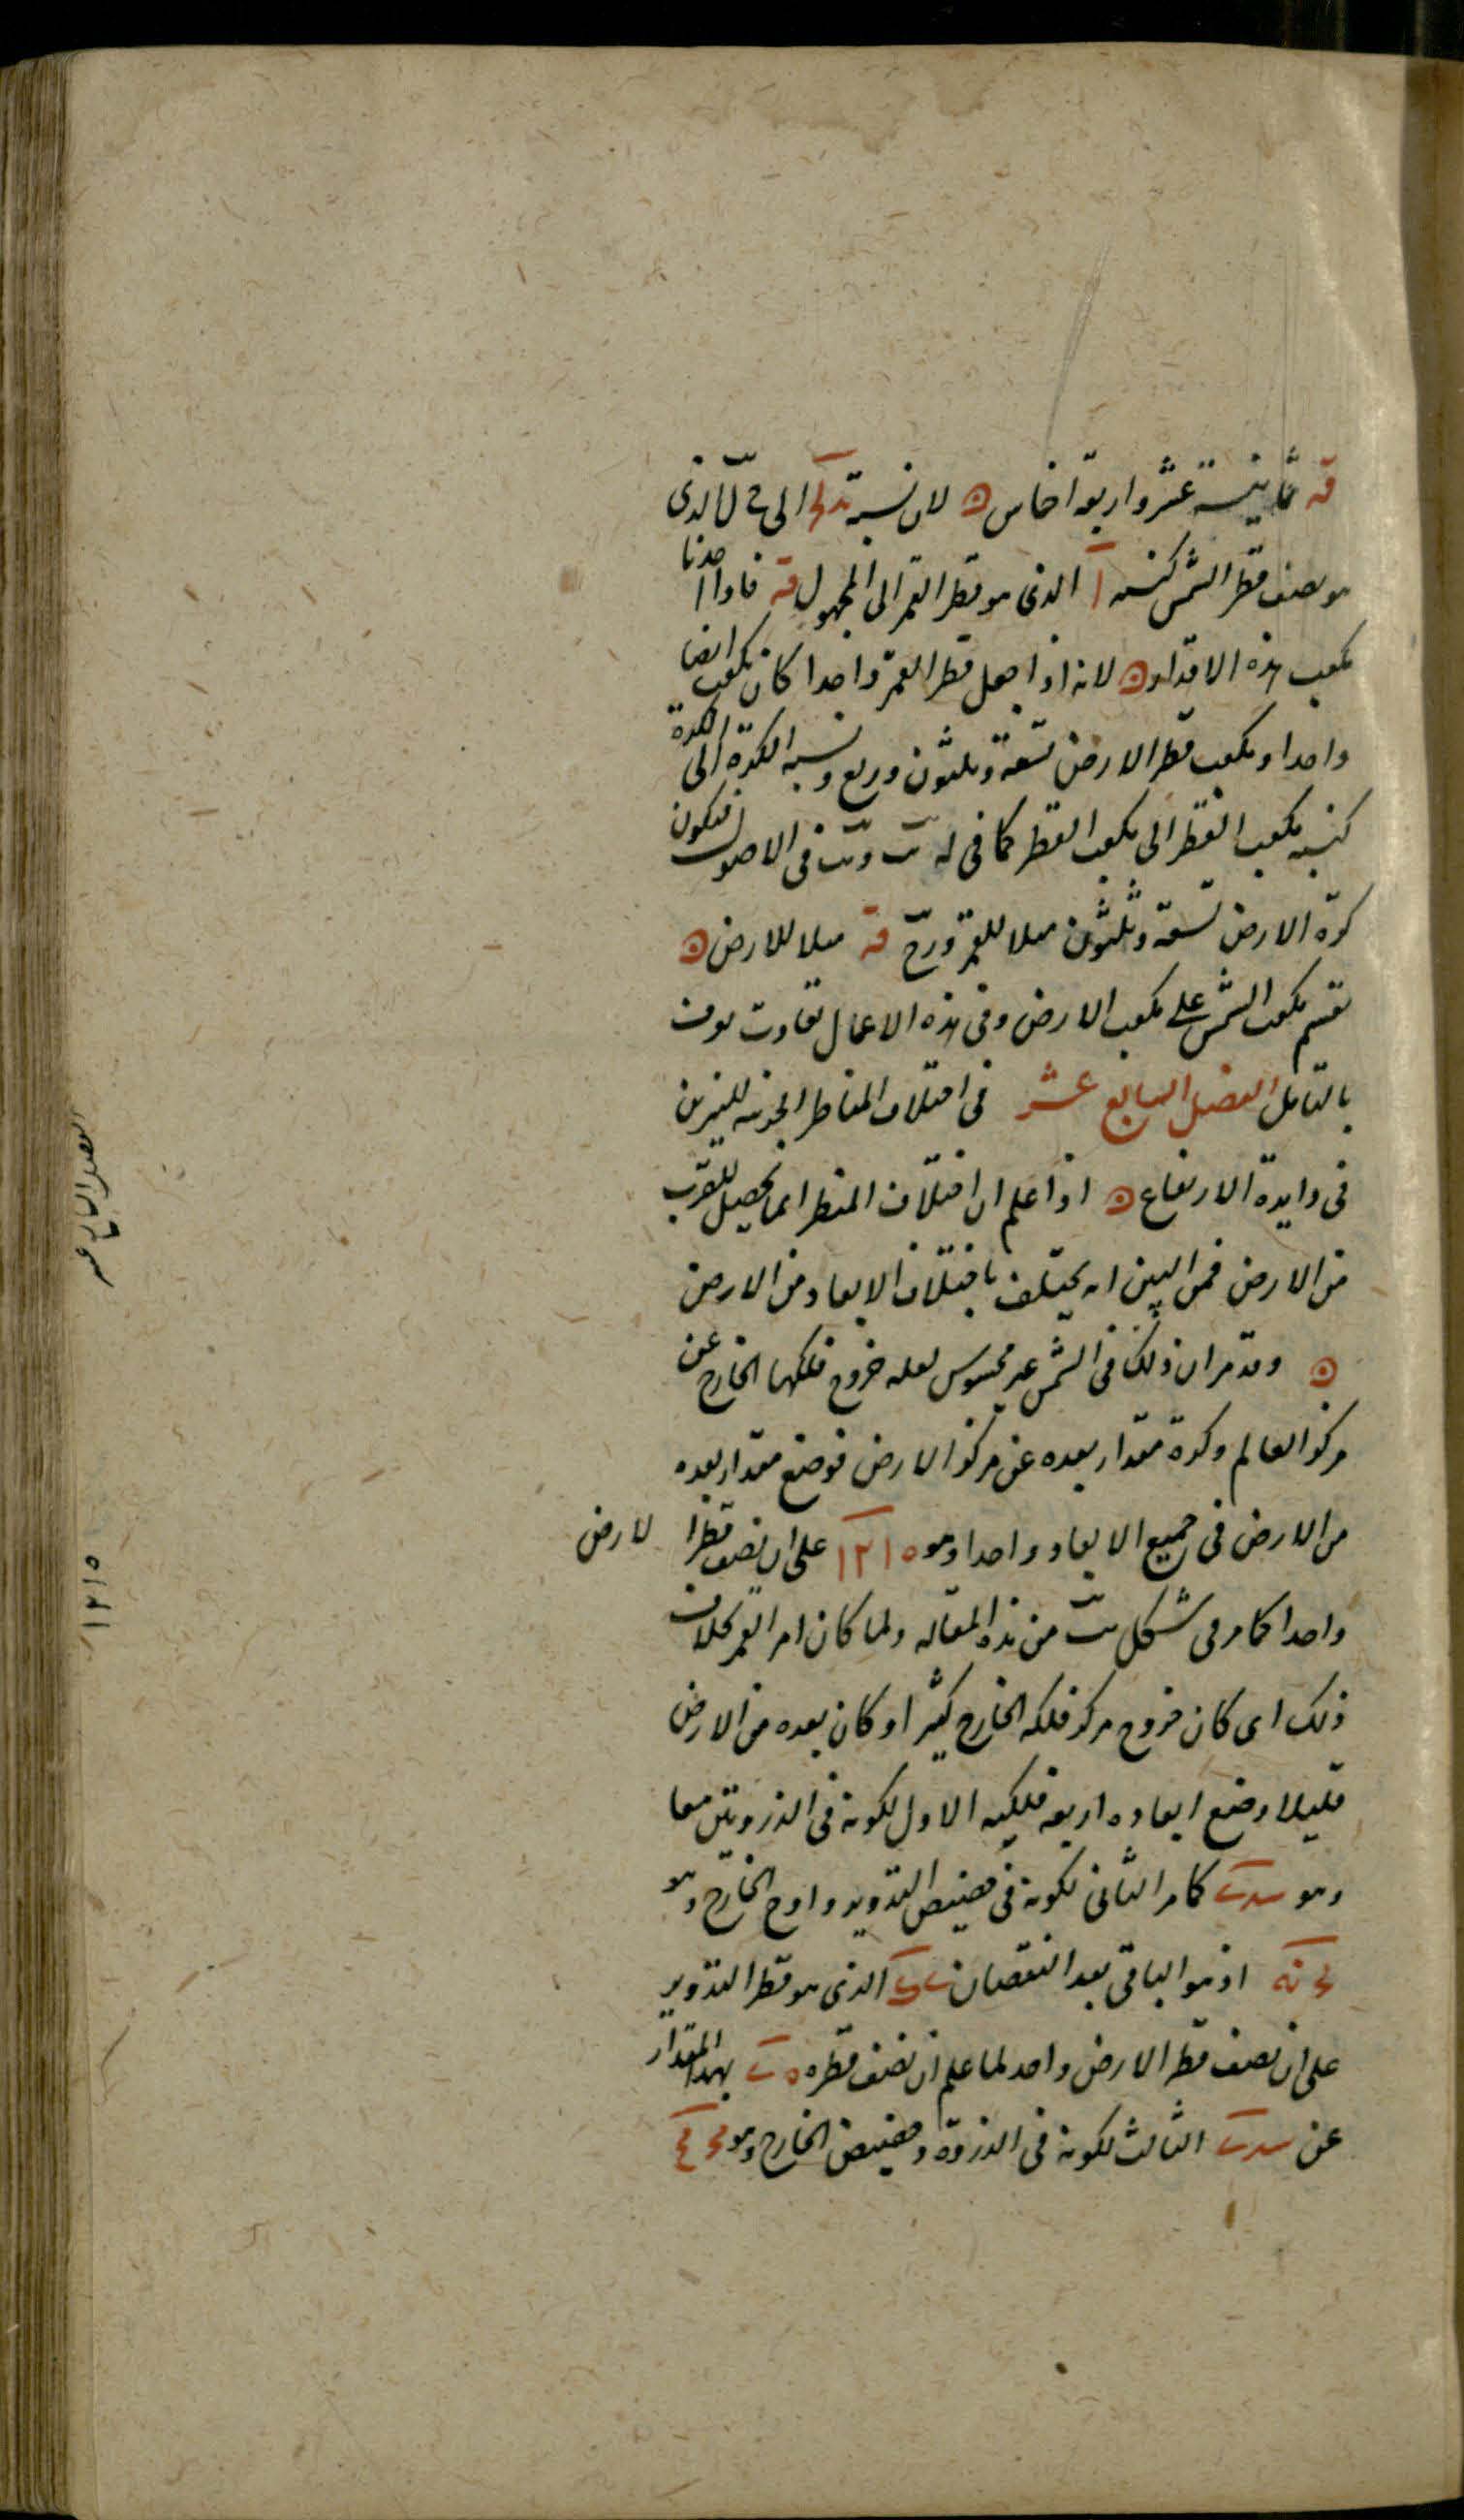 قه ثمانية عشر واربعة اخماس ۞ لان نسبة الى ح ل الذى
هو نصف قطر الشمس كنسبة ا الذى هو قطر القمر الى المجهول قه فاذا اخذنا
مكعب هذه الاقدار ۞ لانه اذا جعل قطر القمر واحدا كان مكعب ايضا
واحدا ومكعب قطر الارض تسعة وثلثون وربع ونسبة الكرة الى الكرة
كنسبة مكعب القطر الى مكعب القطر كما فى له فى الاصول فتكون
كرة الارض تسعة وثلثون مثلا للقمر وربع قه مثلا للارض ۞
نقسم مكعب الشمس على مكعب الارض وفى هذه الاعمال تفاوت يعرف
بالتامل الفصل السابع عشر فى اختلاف المناظر الجزئية للنيرين
فى دايرة الارتفاع ۞ اذا علم ان اختلاف المنظر انما يحصل للقرب
من الارض فمن البين انه يختلف باختلاف الابعاد من الارض
۞ وقد مر ان ذلك فى الشمس غير محسوس لقلة خروج فلكها الخارج عن
مركز العالم وكرة مقدار بعده عن مركز الارض فوضع مقدار بعده
من الارض فى جميع الابعاد واحدا وهو ١٢١٥ على ان نصف قطر الارض
واحدا كما مر فى شكل من هذه المقاله ولما كان امر القمر بخلاف
ذلك اى كان خروج مركز فلكه الخارج كثيرا وكان بعده من الارض
قليلا وضع ابعاده اربعة فلكيه الاول لكونه فى الذروتين معا
وهو كما مر الثانى لكونه فى حضيض التدوير واوج الخارج وهو
نح نه اذ هو الباقى بعد النقصان الذى هو قطر التدوير
على ان نصف قطر الارض واحد لما علم ان نصف قطره بهذا المقدار
عن الثالث لكونه فى الذروة وحضيض الخارج وهو
الفصل السابع عشر
١٢١٥